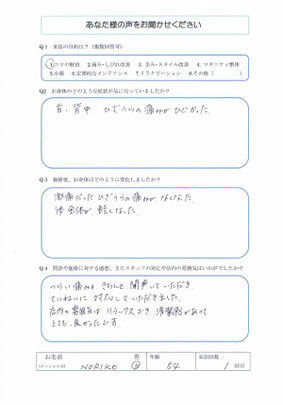 あなた様の声をお聞かせください
Q1 来店の目的は？（複数回答可）
1.コリの解消 2.痛み・しびれ改善 3.歪み・スタイル改善 4.マタニティ整体
5.小顔 6.定期的なメンテナンス 7.リラクゼーション 8.その他（　　）
Q2 お身体のどのような症状が気になっていましたか？
首、背中 ひざうらの痛みがひどかった
Q3 施術後、お身体はどのように変化しましたか？
激痛だったひざうらの痛みが なくなった.
体全体が 軽くなった.
Q4 問診や施術に対する感想、またスタッフの対応や店内の雰囲気はいかがでしたか？
つらい痛みを きちんと 聞いていただき
ていねいに 対応していただきました.
店内の雰囲気は リラックスでき 清潔感があって
とても 良かったです
お名前 男 年齢 来店回数
NORIKO 女 54 1 回目